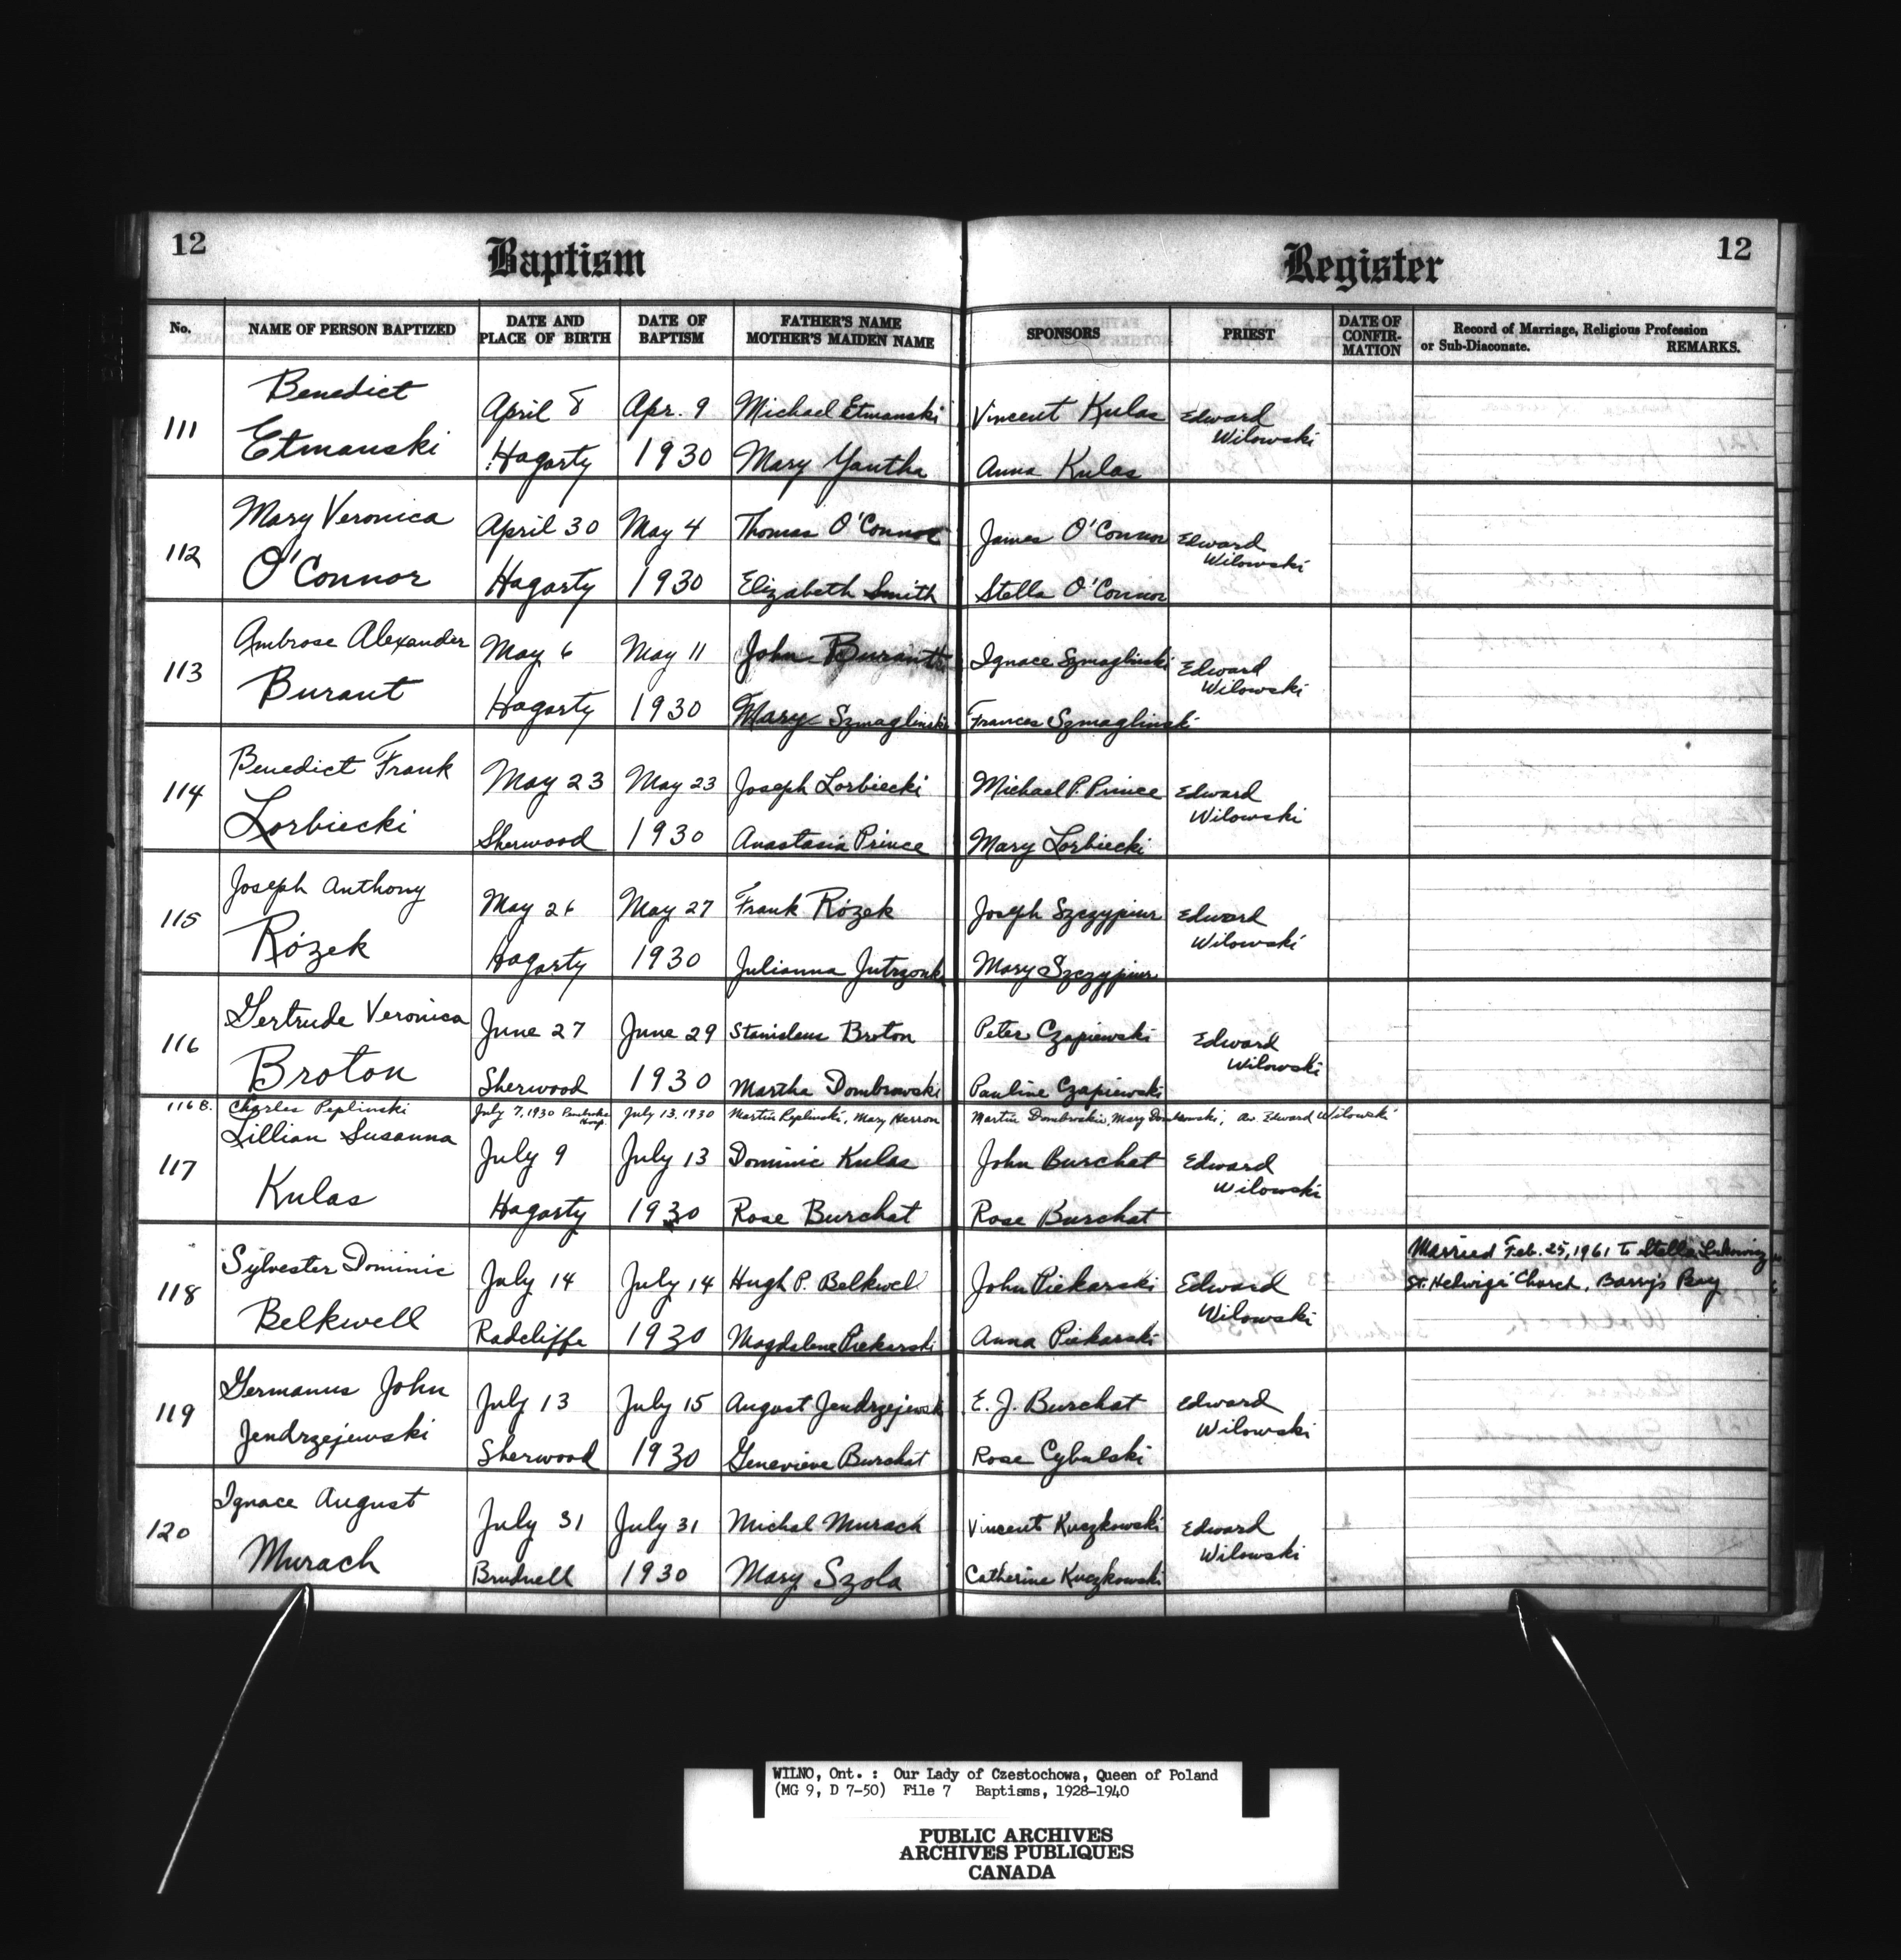 12
Baptism
Register
12
No.
NAME OF PERSON BAPTIZED
DATE AND PLACE OF BIRTH
DATE OF BAPTISM
FATHER'S NAME
MOTHER'S MAIDEN NAME
SPONSORS
PRIEST
DATE OF CONFIR-MATION
Record of Marriage, Religious Profession
or Sub-Diaconate. REMARKS.
111
Benedict
Etmanski
April 8
Hagarty
Apr. 9
1930
Michael Etmanski
Mary Yantha
Vincent Kulas
Anna Kulas
Edward
Wilowski
112
Mary Veronica
O'Connor
April 30
Hagarty
May 4
1930
Thomas O'Connor
Elizabeth Smith
James O'Connor
Stella O'Connor
Edward
Wilowski
113
Ambrose Alexander
Burant
May 6
Hagarty
May 11
1930
John Burant
Mary Szmaglinski
Ignace Szmaglinski
Frances Szmaglinski
Edward
Wilowski
114
Benedict Frank
Lorbiecki
May 23
Sherwood
May 23
1930
Joseph Lorbiecki
Anastasia Prince
Michael P. Prince
Mary Lorbiecki
Edward
Wilowski
115
Joseph Anthony
Rózek
May 26
Hagarty
May 27
1930
Frank Rózek
Julianna Jutrzonk
Joseph Szczypior
Mary Szczypior
Edward
Wilowski
116
Gertrude Veronica
Broton
June 27
Sherwood
June 29
1930
Stanislaus Broton
Martha Dombrowski
Peter Czapiewski
Pauline Czapiewski
Edward
Wilowski
116 B. Charles Peplinski July 7, 1930 Pembroke Hosp. July 13, 1930 Martin Peplinski, Mary Herron Martin Dombroskie, Mary Dombrowski, Edward Wilowski
117
Lillian Susanna
Kulas
July 9
Hagarty
July 13
1930
Dominic Kulas
Rose Burchat
John Burchat
Rose Burchat
Edward
Wilowski
118
Sylvester Dominic
Belkwell
July 14
Radcliffe
July 14
1930
Hugh P. Belkwell
Magdalene Piekarski
John Piekarski
Anna Piekarski
Edward
Wilowski
Married Feb. 25, 1961 to Stella
St. Hedwigs' Church, Barry's Bay
119
Germanus John
Jendrzejewski
July 13
Sherwood
July 15
1930
August Jendrzejewski
Genevieve Burchat
E. J. Burchat
Rose Cybulski
Edward
Wilowski
120
Ignace August
Murach
July 31
Brudnell
July 31
1930
Michal Murach
Mary Szola
Vincent Kuczkowski
Catherine Kuczkowski
Edward
Wilowski
WILNO, Ont. : Our Lady of Czestochowa, Queen of Poland
(MG 9, D 7-50) File 7 Baptisms, 1928-1940
PUBLIC ARCHIVES
ARCHIVES PUBLIQUES
CANADA